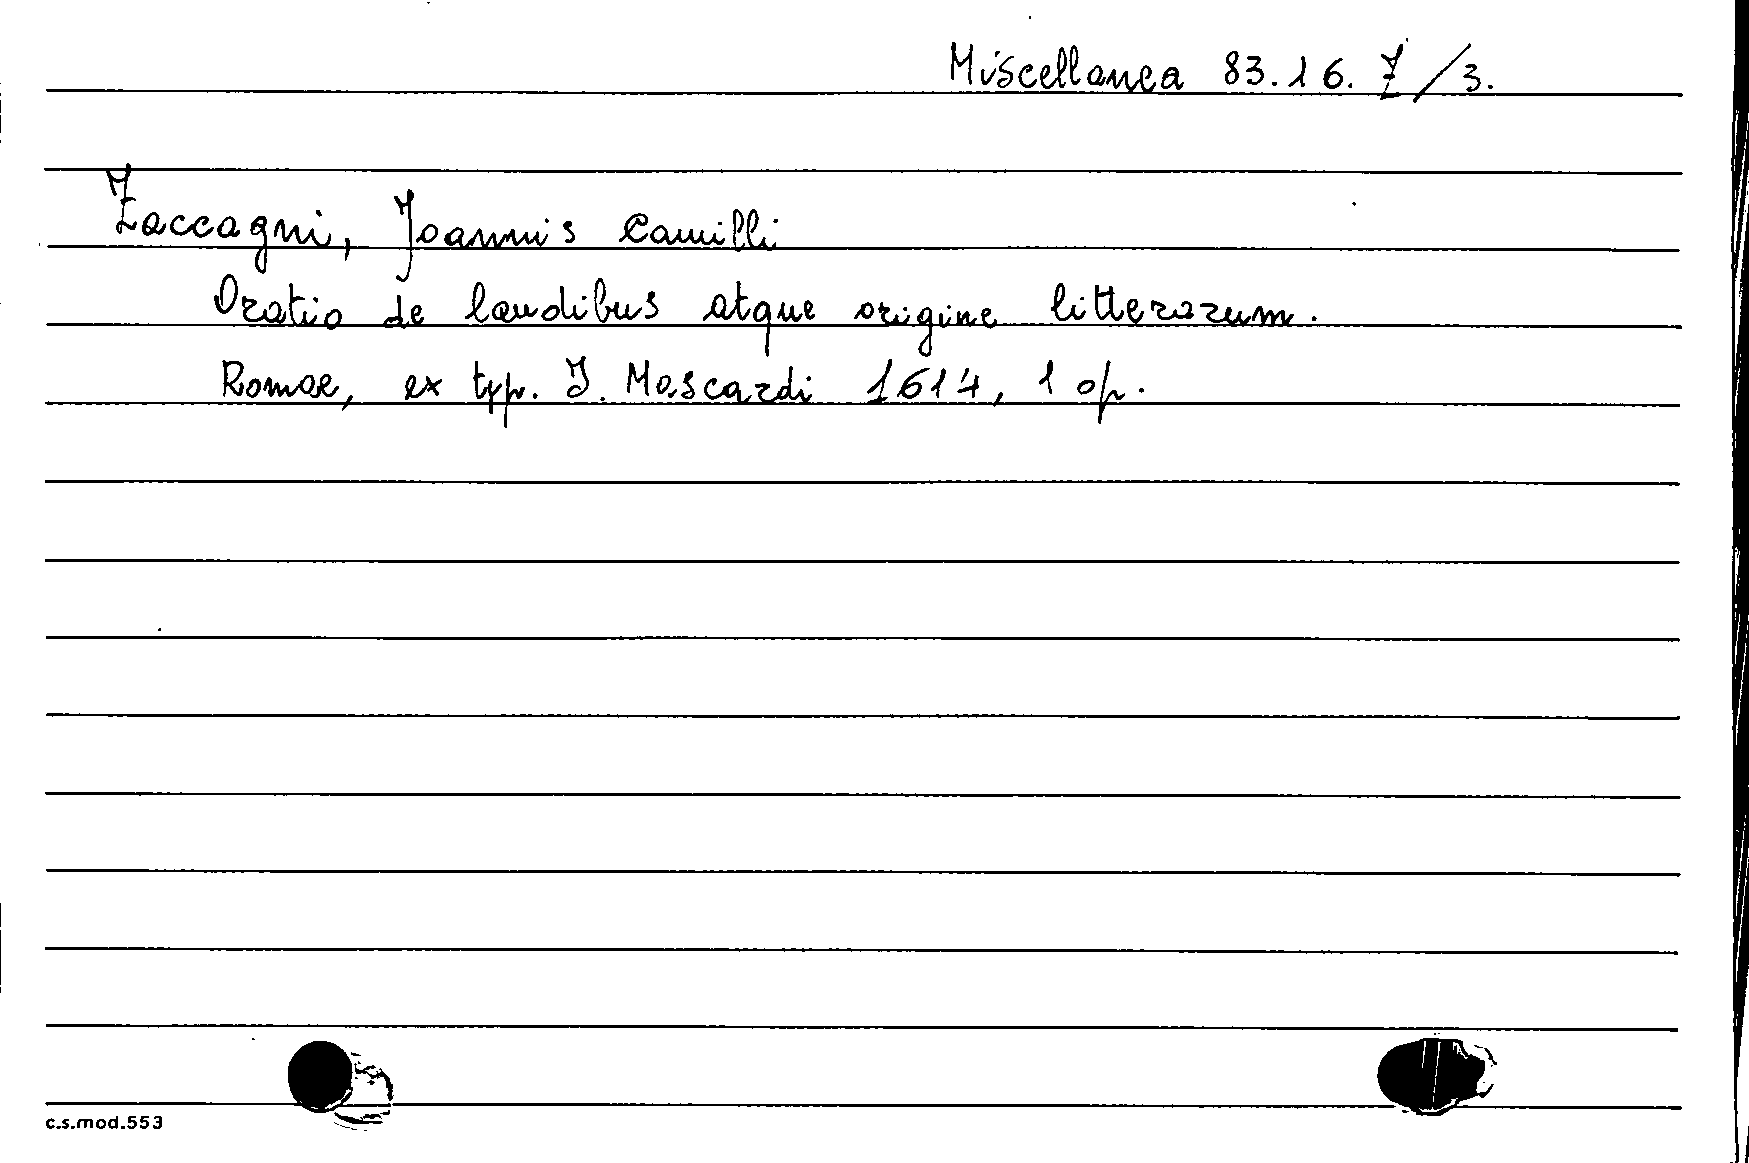 Miscellanea 83.16. Z/3.
Zaccagni, Joannis Camilli
Oratio de laudibus atque origine litterarum.
Romae, ex typ. J. Mascardi 1614, 1 op.
c.s.mod.553